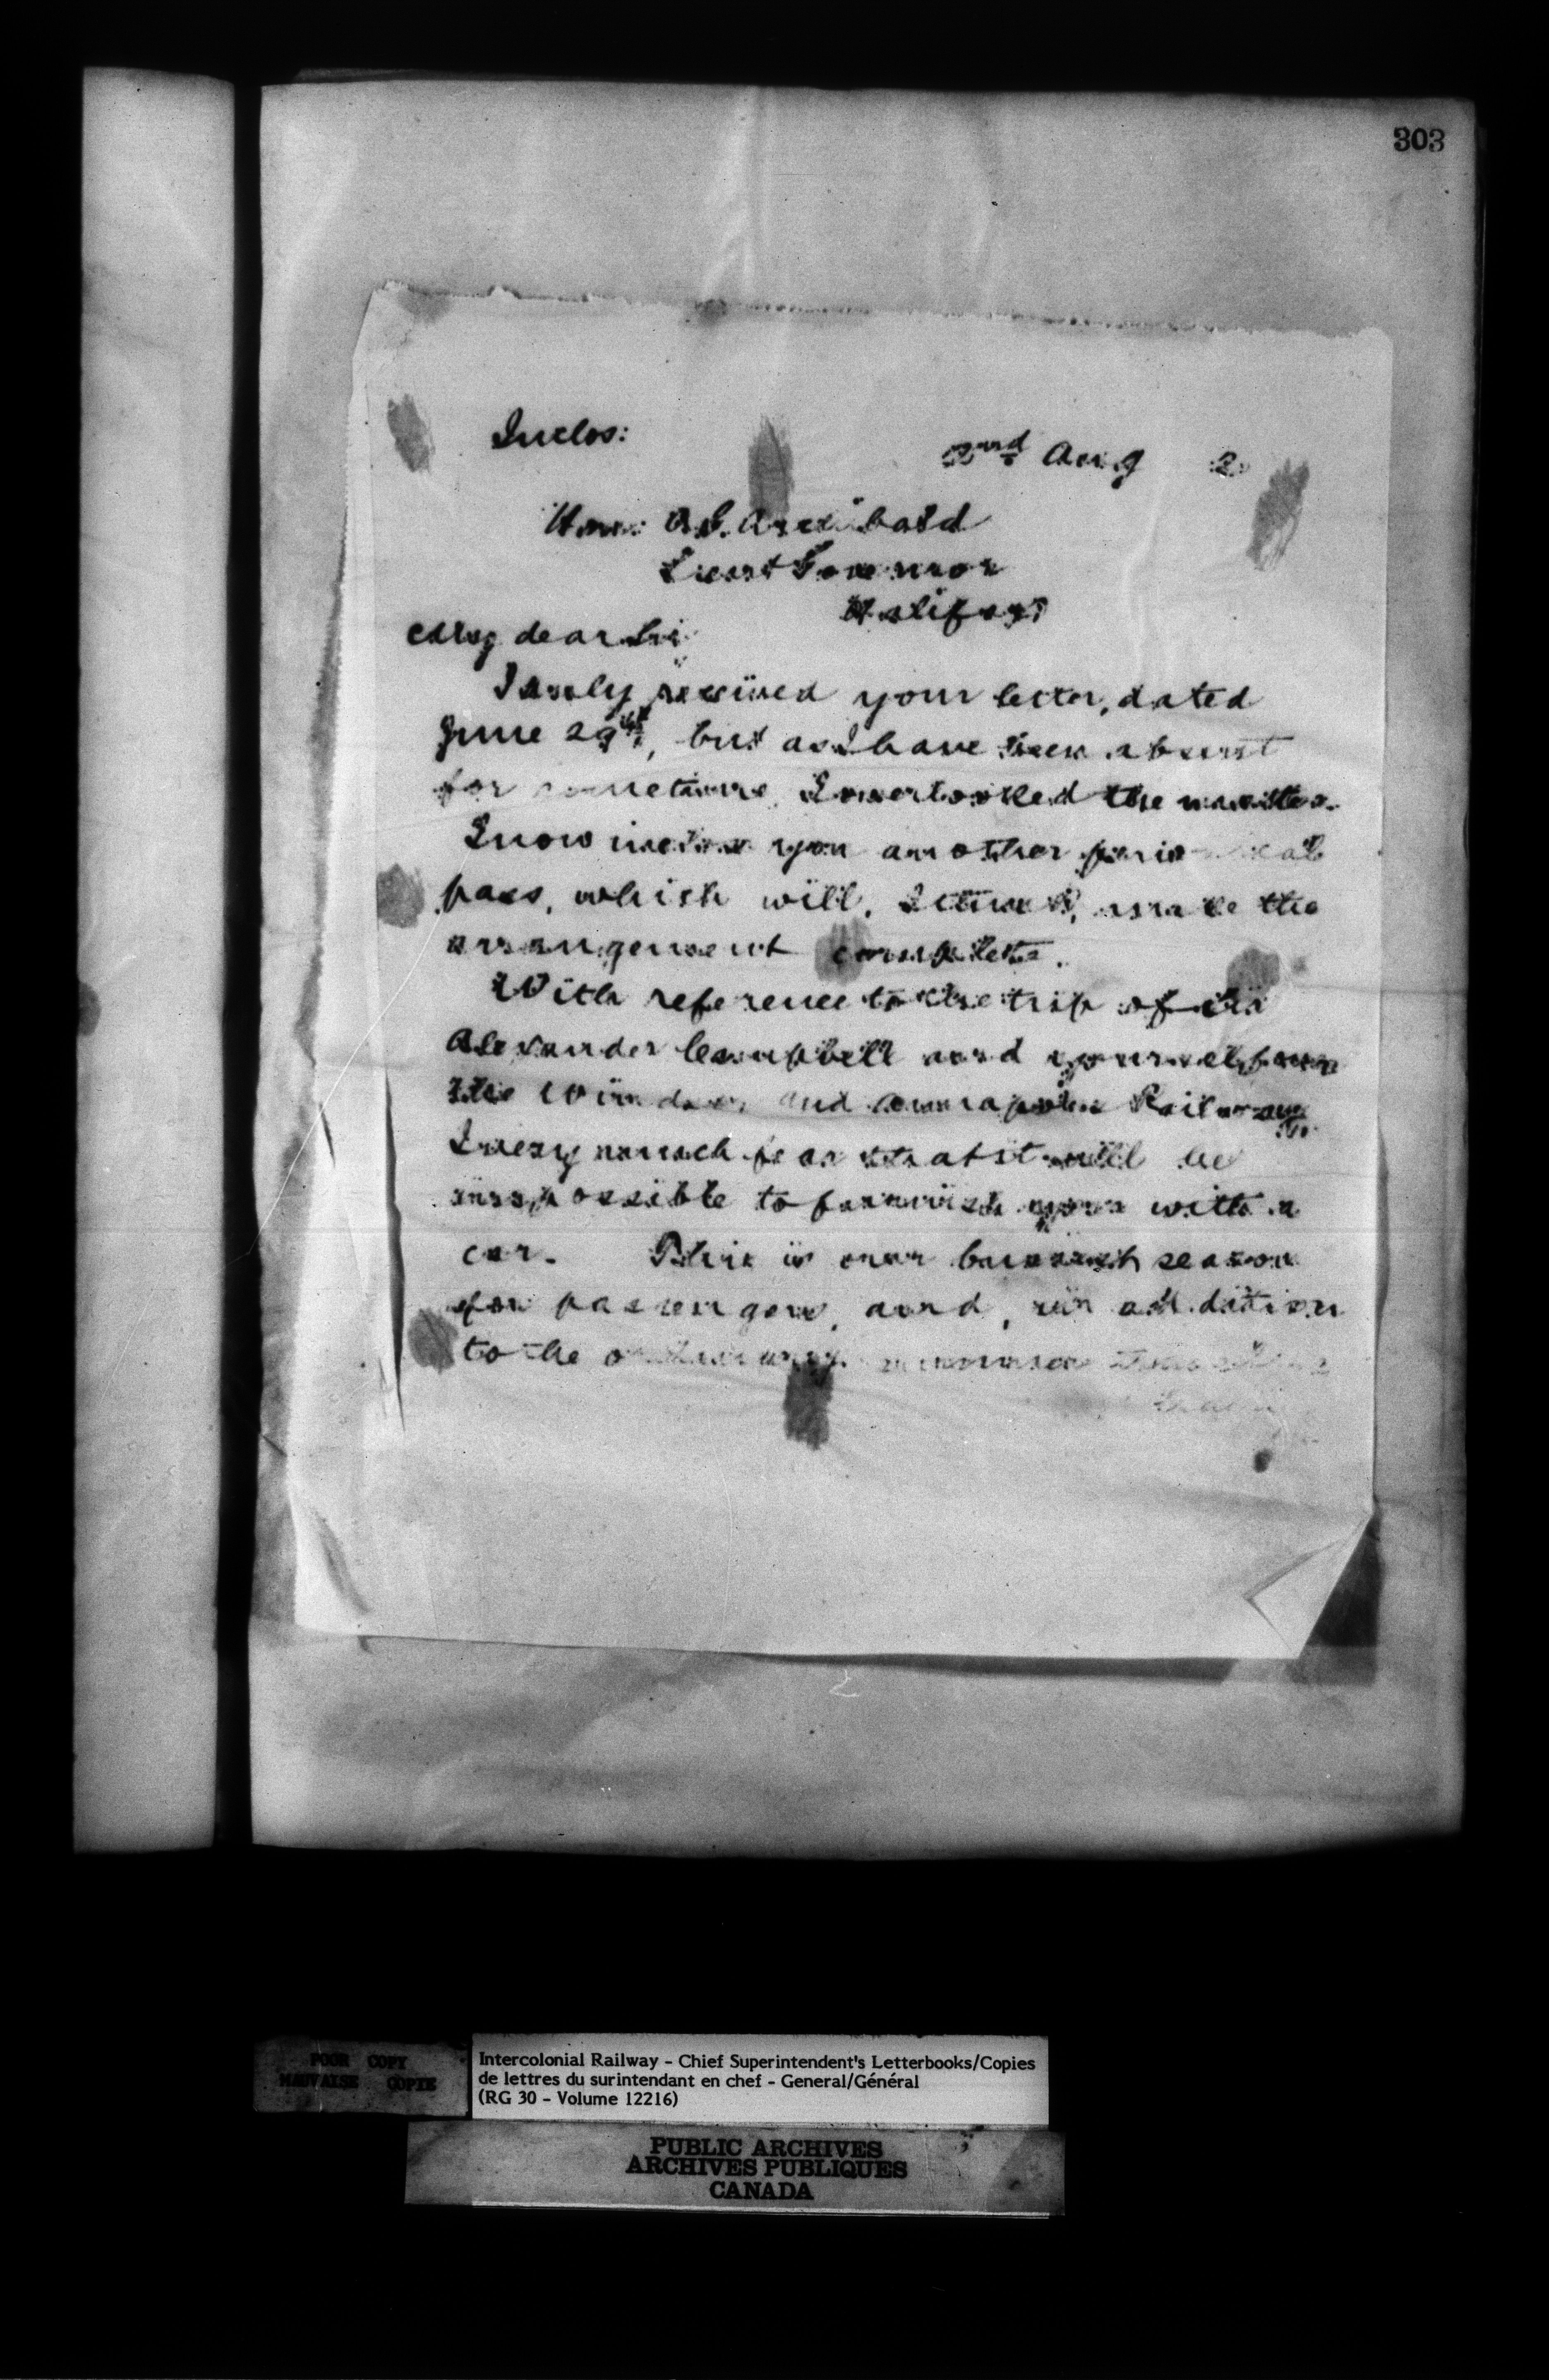 303
Inclos:
2nd Aug 2
Hon: A.G. Archibald
Lieut Governor
Halifax
My dear Sir
I duly received your letter, dated
June 29th, but as I have been absent
for sometime I overlooked the matter.
I now inclose you another periodical
pass, which will, I think, make the
arrangement complete.
With reference to the trip of Sir
Alexander Campbell and yourself over
the Windsor and Annapolis Railway
I very much fear that it will be
impossible to furnish you with a
car. This is our busiest season
for passengers, and, in addition
to the ordinary summer
POOR COPY
MAUVAISE COPIE
Intercolonial Railway - Chief Superintendent's Letterbooks/Copies
de lettres du surintendant en chef - General/Général
(RG 30 - Volume 12216)
PUBLIC ARCHIVES
ARCHIVES PUBLIQUES
CANADA